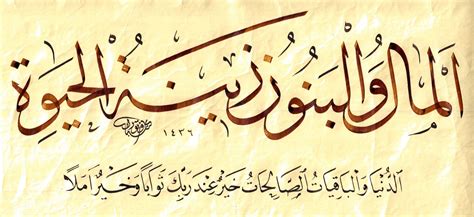 المال والبنون زينة الحيوة
١٤٣٦
الدنيا والباقيات الصالحات خير عند ربك ثوابا وخير املا